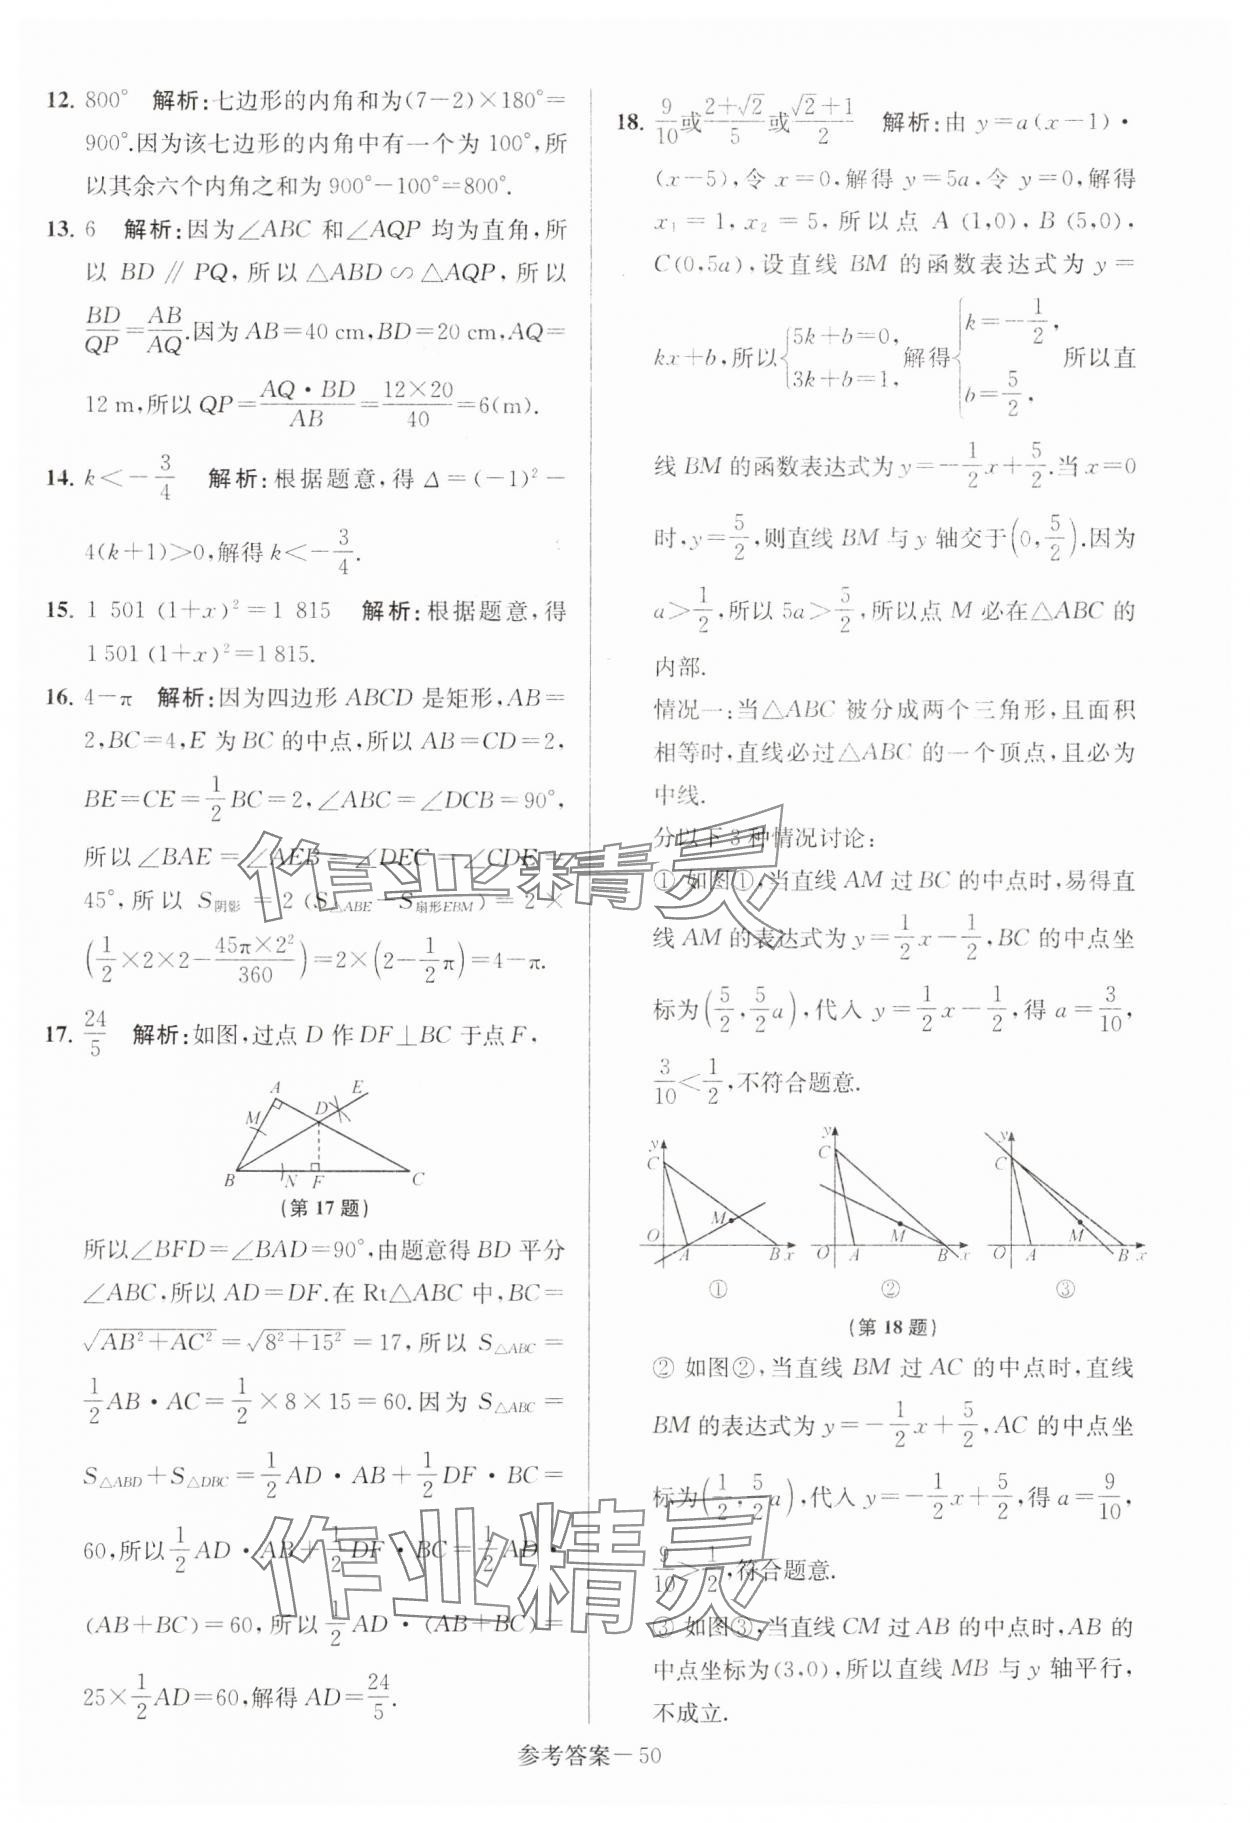 12. 800° 解析:七边形的内角和为(7-2)×180°=
900°.因为该七边形的内角中有一个为 100°,所
以其余六个内角之和为 900°-100°=800°.
13. 6 解析:因为∠ABC 和∠AQP 均为直角,所
以 BD∥PQ,所以△ABD∽△AQP,所以
BD/QP=AB/AQ.因为 AB=40 cm,BD=20 cm,AQ=
12 m,所以 QP=AQ·BD/AB=12×20/40=6(m).
14. k<-3/4 解析:根据题意,得 Δ=(-1)²-
4(k+1)>0,解得 k<-3/4.
15. 1 501(1+x)²=1 815 解析:根据题意,得
1 501(1+x)²=1 815.
16. 4-π 解析:因为四边形 ABCD 是矩形,AB=
2,BC=4,E 为 BC 的中点,所以 AB=CD=2,
BE=CE=1/2BC=2,∠ABC=∠DCB=90°,
所以∠BAE=∠AEB=∠DEC=∠CDE=
45°,所以 S阴影=2(S△ABE-S扇形EBM)=2×
(1/2×2×2-45π×2²/360)=2×(2-1/2π)=4-π.
17. 24/5 解析:如图,过点 D 作 DF⊥BC 于点 F,
A
E
M
D
B
N
F
C
(第 17 题)
所以∠BFD=∠BAD=90°,由题意得 BD 平分
∠ABC,所以 AD=DF.在 Rt△ABC 中,BC=
√(AB²+AC²)=√(8²+15²)=17,所以 S△ABC=
1/2AB·AC=1/2×8×15=60.因为 S△ABC=
S△ABD+S△DBC=1/2AD·AB+1/2DF·BC=
60,所以1/2AD·AB+1/2DF·BC=1/2AD·
(AB+BC)=60,所以1/2AD·(AB+BC)=
25×1/2AD=60,解得 AD=24/5.
18. 9/10或(2+√2)/5或(√2+1)/2 解析:由 y=a(x-1)·
(x-5),令 x=0,解得 y=5a.令 y=0,解得
x₁=1,x₂=5,所以点 A(1,0),B(5,0),
C(0,5a),设直线 BM 的函数表达式为 y=
kx+b,所以{5k+b=0, 3k+b=1,解得{k=-1/2, b=5/2,所以直
线 BM 的函数表达式为 y=-1/2x+5/2.当 x=0
时,y=5/2,则直线 BM 与 y 轴交于(0,5/2).因为
a>1/2,所以 5a>5/2,所以点 M 必在△ABC 的
内部.
情况一:当△ABC 被分成两个三角形,且面积
相等时,直线必过△ABC 的一个顶点,且必为
中线.
分以下 3 种情况讨论:
① 如图①,当直线 AM 过 BC 的中点时,易得直
线 AM 的表达式为 y=1/2x-1/2,BC 的中点坐
标为(5/2,5/2a),代入 y=1/2x-1/2,得 a=3/10,
3/10<1/2,不符合题意.
y
C
M
O
A
B
x
①
y
C
M
O
A
B
x
②
y
C
M
O
A
B
x
③
(第 18 题)
② 如图②,当直线 BM 过 AC 的中点时,直线
BM 的表达式为 y=-1/2x+5/2,AC 的中点坐
标为(1/2,5/2a),代入 y=-1/2x+5/2,得 a=9/10,
9/10>1/2,符合题意.
③ 如图③,当直线 CM 过 AB 的中点时,AB 的
中点坐标为(3,0),所以直线 MB 与 y 轴平行,
不成立.
作业精灵
作业精灵
参考答案—50